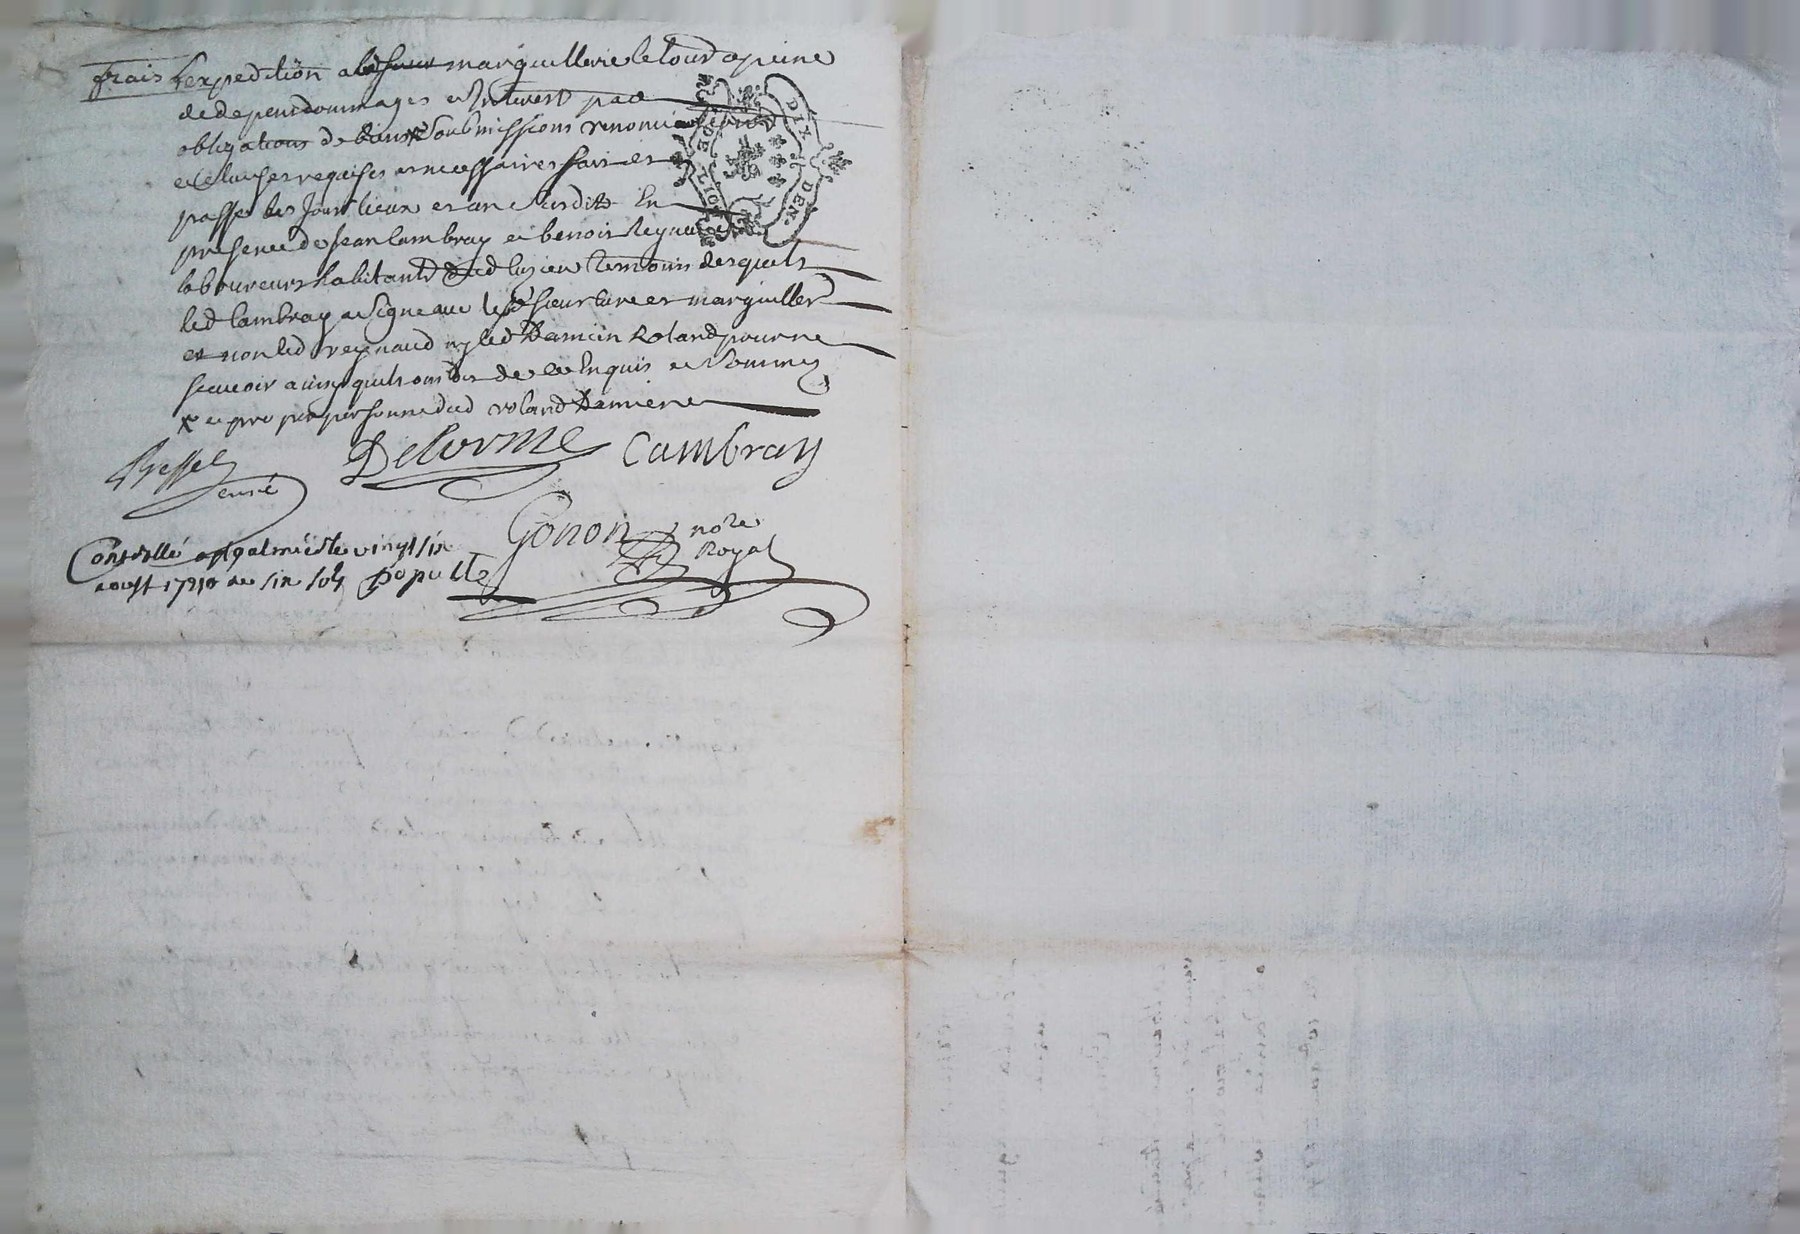 frais Lexpedition aud sieur marguillerie le tout a peine
de depens dommages et Interest par
obligations de biens soubmissions renonciations
et clauses requises et necessaires fait et
passé les Jour lieux et an susdits En
presence de Jean Cambray et benoist Reynaud
laboureurs habitants dud temoins desquels
led Cambray a signé avec led sieur curé et marguiller
et non led reynaud ny led Damien Roland pour ne
scavoir ainsy quils ont dit de ce Enquis et sommés
x et propre personne dud roland Damien
curé
Delorme
Cambray
Gonon nore
Royal
Controllé a st galmier le vingt six
aoust six sols
DIX DEN.
LION